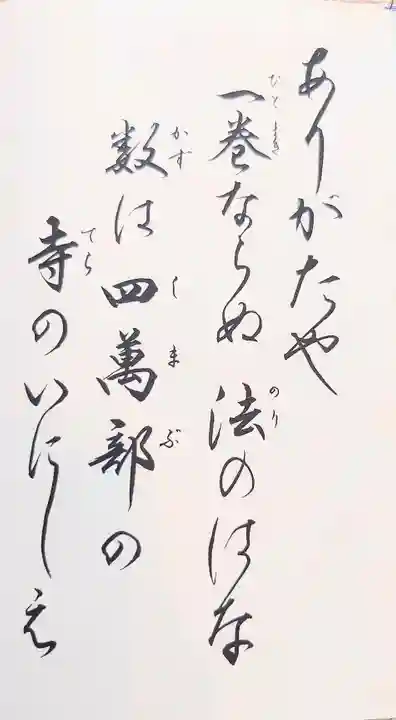 ありがたや
一巻ならぬ 法のはな
ひと まき のり
数は四萬部の
かず しまぶ
寺のいにしえ
てら